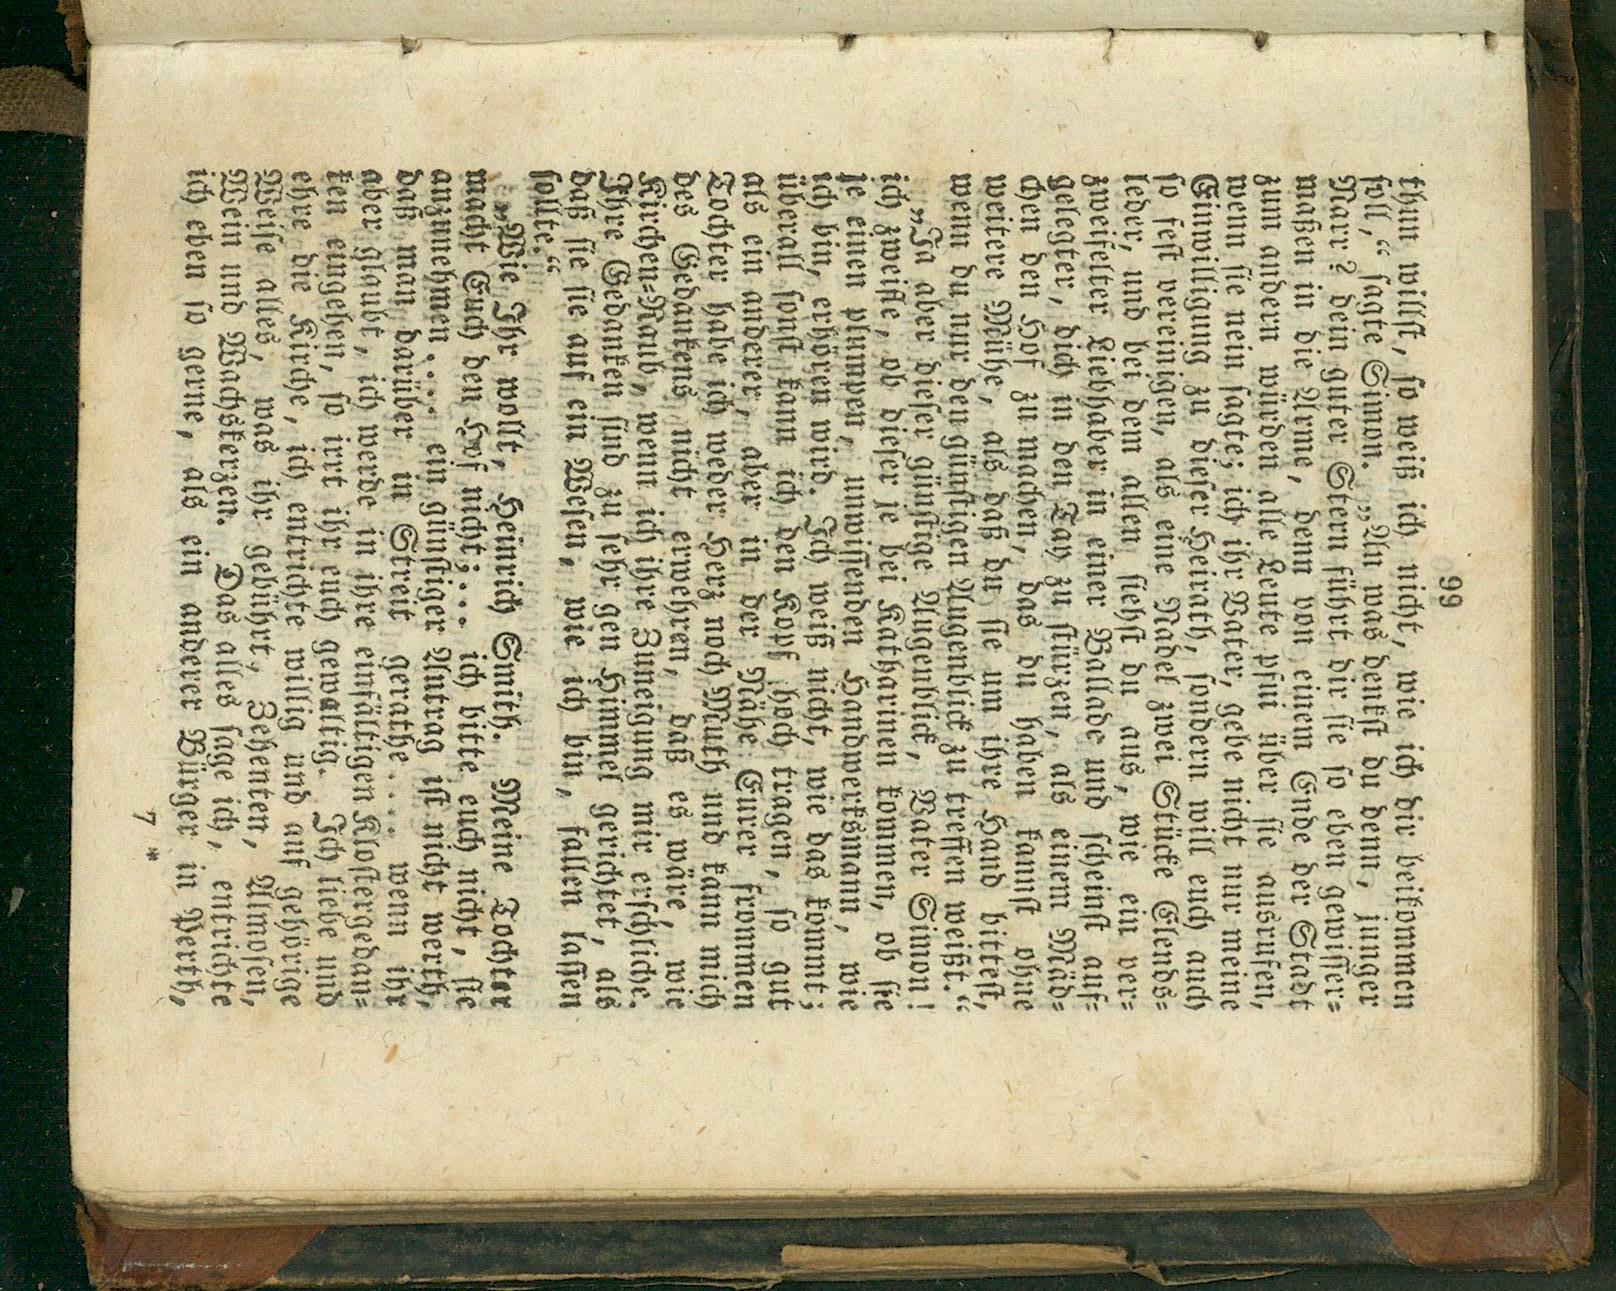 99
thun willst, so weiß ich nicht, wie ich dir beikommen
soll,“ sagte Simon. „An was denkst du denn, junger
Narr? dein guter Stern führt dir sie so eben gewisser=
maßen in die Arme, denn von einem Ende der Stadt
zum andern würden alle Leute pfui über sie ausrufen,
wenn sie nein sagte; ich ihr Vater, gebe nicht nur meine
Einwilligung zu dieser Heirath, sondern will euch auch
so fest vereinigen, als eine Nadel zwei Stücke Elends=
leder, und bei dem allen siehst du aus, wie ein ver=
zweifelter Liebhaber in einer Ballade und scheinst auf=
gelegter, dich in den Tay zu stürzen, als einem Mäd=
chen den Hof zu machen, das du haben kannst ohne
weitere Mühe, als daß du sie um ihre Hand bittest,
wenn du nur den günstigen Augenblick zu treffen weißt.“
„Ja aber dieser günstige Augenblick, Vater Simon!
ich zweifle, ob dieser je bei Katharinen kommen, ob sie
je einen plumpen, unwissenden Handwerksmann, wie
ich bin, erhören wird. Ich weiß nicht, wie das kommt;
überall sonst kann ich den Kopf hoch tragen, so gut
als ein anderer, aber in der Nähe Eurer frommen
Tochter habe ich weder Herz noch Muth und kann mich
des Gedankens nicht erwehren, daß es wäre, wie
Kirchen=Raub, wenn ich ihre Zuneigung mir erschliche.
Ihre Gedanken sind zu sehr gen Himmel gerichtet, als
daß sie sie auf ein Wesen, wie ich bin, fallen lassen
sollte.“
„Wie Ihr wollt, Heinrich Smith. Meine Tochter
macht Euch den Hof nicht;... ich bitte euch nicht, sie
anzunehmen.... ein günstiger Antrag ist nicht werth,
daß man darüber in Streit gerathe.... wenn ihr
aber glaubt, ich werde in ihre einfältigen Klostergedan=
ken eingehen, so irrt ihr euch gewaltig. Ich liebe und
ehre die Kirche, ich entrichte willig und auf gehörige
Weise alles, was ihr gebührt, Zehenten, Almosen,
Wein und Wachskerzen. Das alles sage ich, entrichte
ich eben so gerne, als ein anderer Bürger in Perth,
7 *